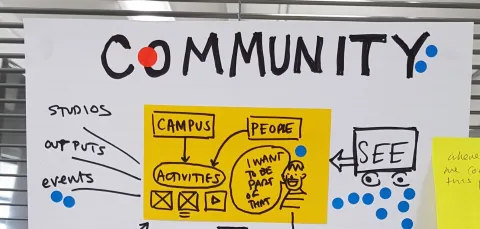 COMMUNITY
STUDIOS
OUTPUTS
events
CAMPUS
PEOPLE
ACTIVITIES
I WANT
TO BE
PART
OF
THAT
SEE
where
me
this